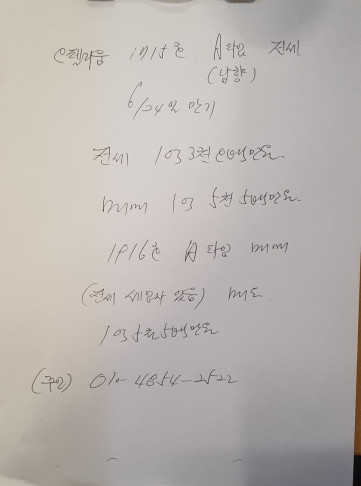 오텔라움 1715호 A타입 전세
(남향)
6/24일 만기
전세 1억 3천 오백만원
매매 1억 5천 5백만원
1916호 A타입 매매
(전세 세입자 있음) 매도
1억 5천 5백만원
(주인) 010-4854-2522